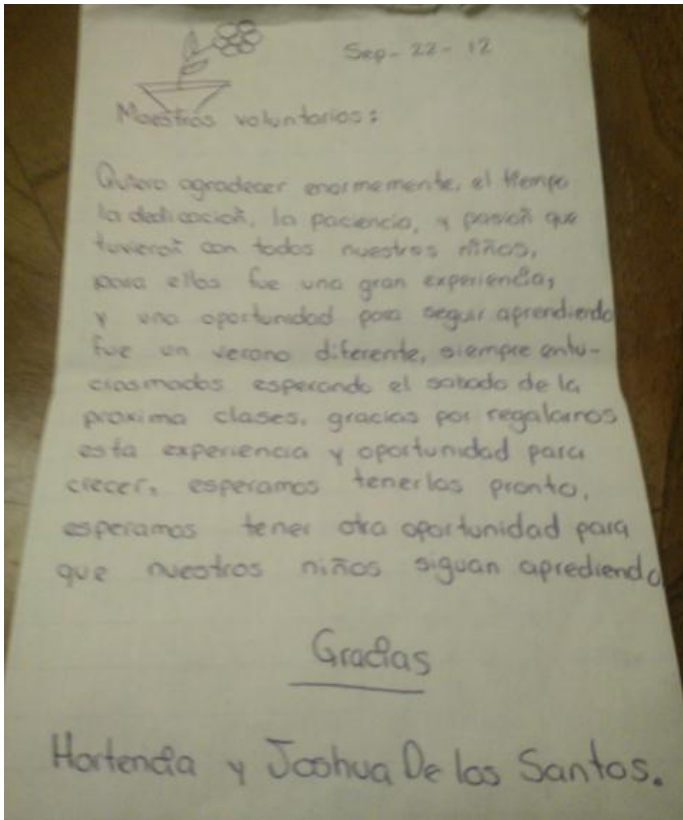 Sep- 22- 12
Maestros voluntarios:
Quiero agradecer enormemente, el tiempo
la dedicación, la paciencia, y pasión que
tuvierón con todos nuestros niños,
para ellos fue una gran experiencia,
y una oportunidad para seguir aprendiendo
fue un verano diferente, siempre entu-
ciasmados esperando el sabado de la
proxima clases, gracias por regalarnos
esta experiencia y oportunidad para
crecer, esperamos tenerlos pronto,
esperamos tener otra oportunidad para
que nuestros niños siguan aprediendo
Gracias
Hortencia y Joshua De los Santos.